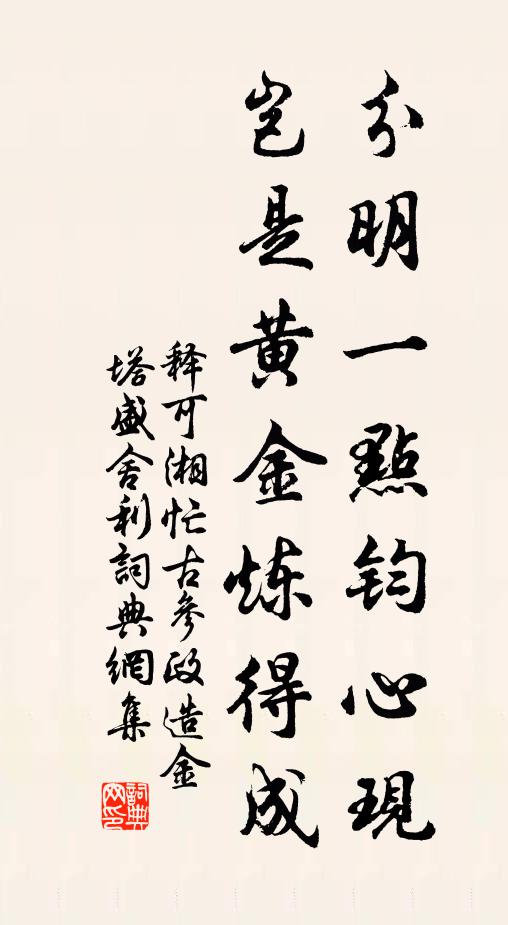 分明一點鈞心現
岂是黄金炼得成
释可湘忙古參政造金
塔盛舍利詞典網集
詞典
网印